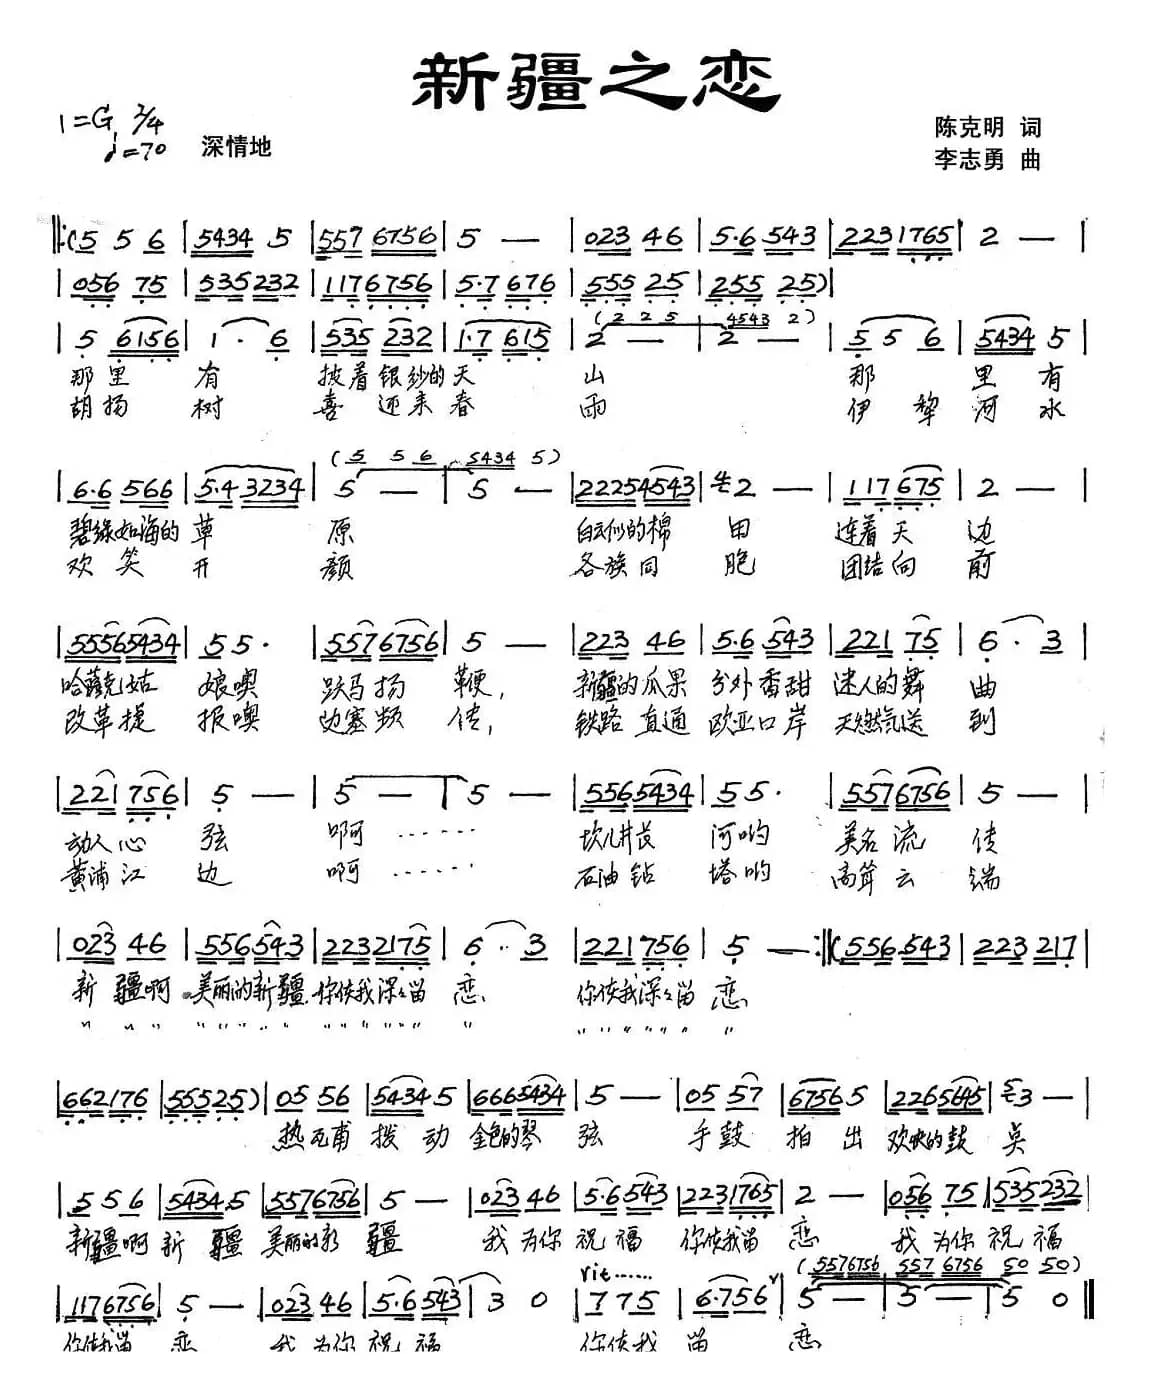 新疆之恋
1=G 2/4
♩=70 深情地
陈克明 词
李志勇 曲
‖:(5 5 6 | 5434 5 | 557 6756 | 5 — | 023 46 | 5·6 543 | 223 1765 | 2 — |
| 056 75 | 535 232 | 117 6756 | 5·7 676 | 555 25 | 255 25) |
(2 2 5 4543 2)
| 5 6156 | 1· 6 | 535 232 | 1·7 615 | 2 — | 2 — | 5 5 6 | 5434 5 |
那里有 披着银纱的天 山 那 里有
胡扬树 喜还来春 雨 伊犁河水
(5 5 6 5434 5)
| 6·6 566 | 5·4 3234 | 5 — | 5 — | 2225 4543 | 2 — | 117 675 | 2 — |
碧绿如海的草 原 白云似的棉 田 连着天 边
欢笑开 颜 各族同 胞 团结向 前
| 5556 5434 | 5 5· | 557 6756 | 5 — | 223 46 | 5·6 543 | 221 75 | 6· 3 |
哈萨克姑 娘噢 跃马扬 鞭, 新疆的瓜果 分外香甜 迷人的舞 曲
改革捷 报噢 边塞频 传, 铁路直通 欧亚口岸 天燃气送 到
| 221 756 | 5 — | 5 — | 5 — | 556 5434 | 5 5· | 557 6756 | 5 — |
动人心 弦 啊 …… 坎儿井 河哟 美名流 传
黄浦江 边 啊 …… 石油钻 塔哟 高耸云 端
| 023 46 | 556 543 | 223 2175 | 6·· 3 | 221 756 | 5 — :‖ (556 543 | 223 217 |
新疆啊 美丽的新疆 你使我深々留 恋 你使我深々留 恋
〃 〃 〃 〃 〃 〃 〃 〃 〃 〃 〃 〃 〃 〃 〃 〃
| 662176 | 555 25) | 05 56 | 5434 5 | 666 5434 | 5 — | 05 57 | 6756 5 | 226 5645 | 3 — |
热瓦甫 拨动 金色的琴 弦 手鼓 拍出 欢快的鼓 点
| 5 5 6 | 5434 5 | 557 6756 | 5 — | 023 46 | 5·6 543 | 223 1765 | 2 — | 056 75 | 535 232 |
新疆啊 新疆 美丽的新 疆 我为你 祝福 你使我留 恋 我为你 祝福
rit…… (5576756 557 6756 50 50)
| 117 6756 | 5 — | 023 46 | 5·6 543 | 3 0 | 7 75 | 6·756 | 5 — | 5 — | 5 0 ‖
你使我留 恋 我为你 祝福 你使我 留 恋